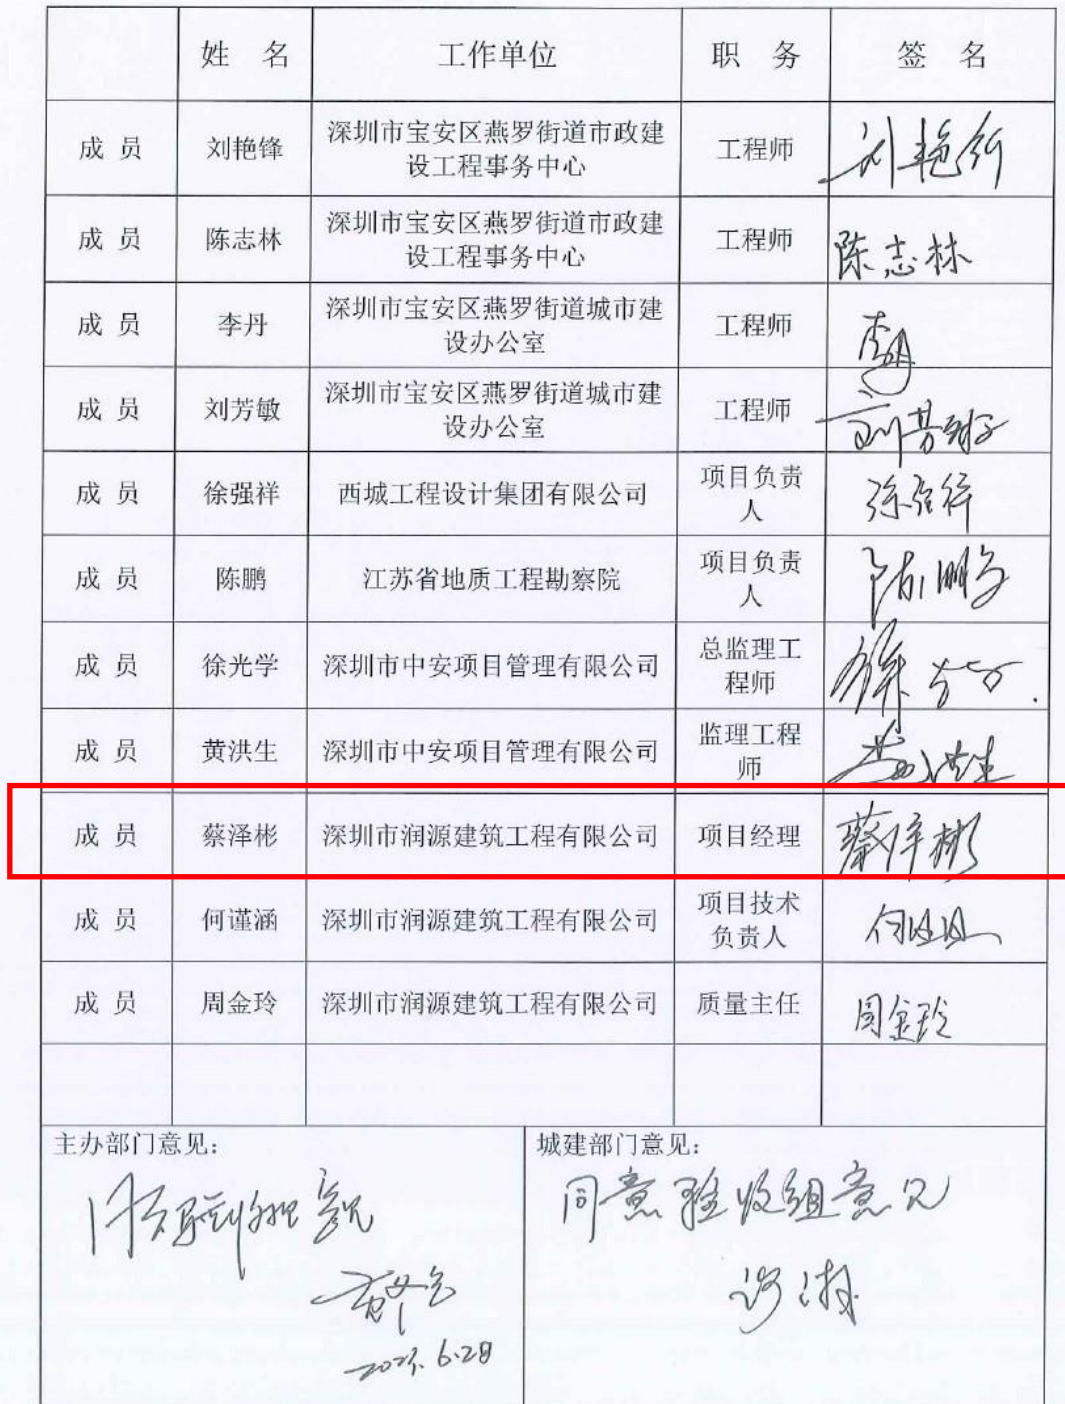 姓 名 工作单位 职 务 签 名
成 员 刘艳锋 深圳市宝安区燕罗街道市政建 工程师
设工程事务中心
成 员 陈志林 深圳市宝安区燕罗街道市政建 工程师 陈志林
设工程事务中心
成 员 李丹 深圳市宝安区燕罗街道城市建 工程师
设办公室
成 员 刘芳敏 深圳市宝安区燕罗街道城市建 工程师 刘芳敏
设办公室
成 员 徐强祥 西城工程设计集团有限公司 项目负责
人
成 员 陈鹏 江苏省地质工程勘察院 项目负责
人
成 员 徐光学 深圳市中安项目管理有限公司 总监理工
程师
成 员 黄洪生 深圳市中安项目管理有限公司 监理工程 黄洪生
师
成 员 蔡泽彬 深圳市润源建筑工程有限公司 项目经理 蔡泽彬
成 员 何谨涵 深圳市润源建筑工程有限公司 项目技术
负责人
成 员 周金玲 深圳市润源建筑工程有限公司 质量主任 周金玲
主办部门意见：
城建部门意见：
同意验收组意见